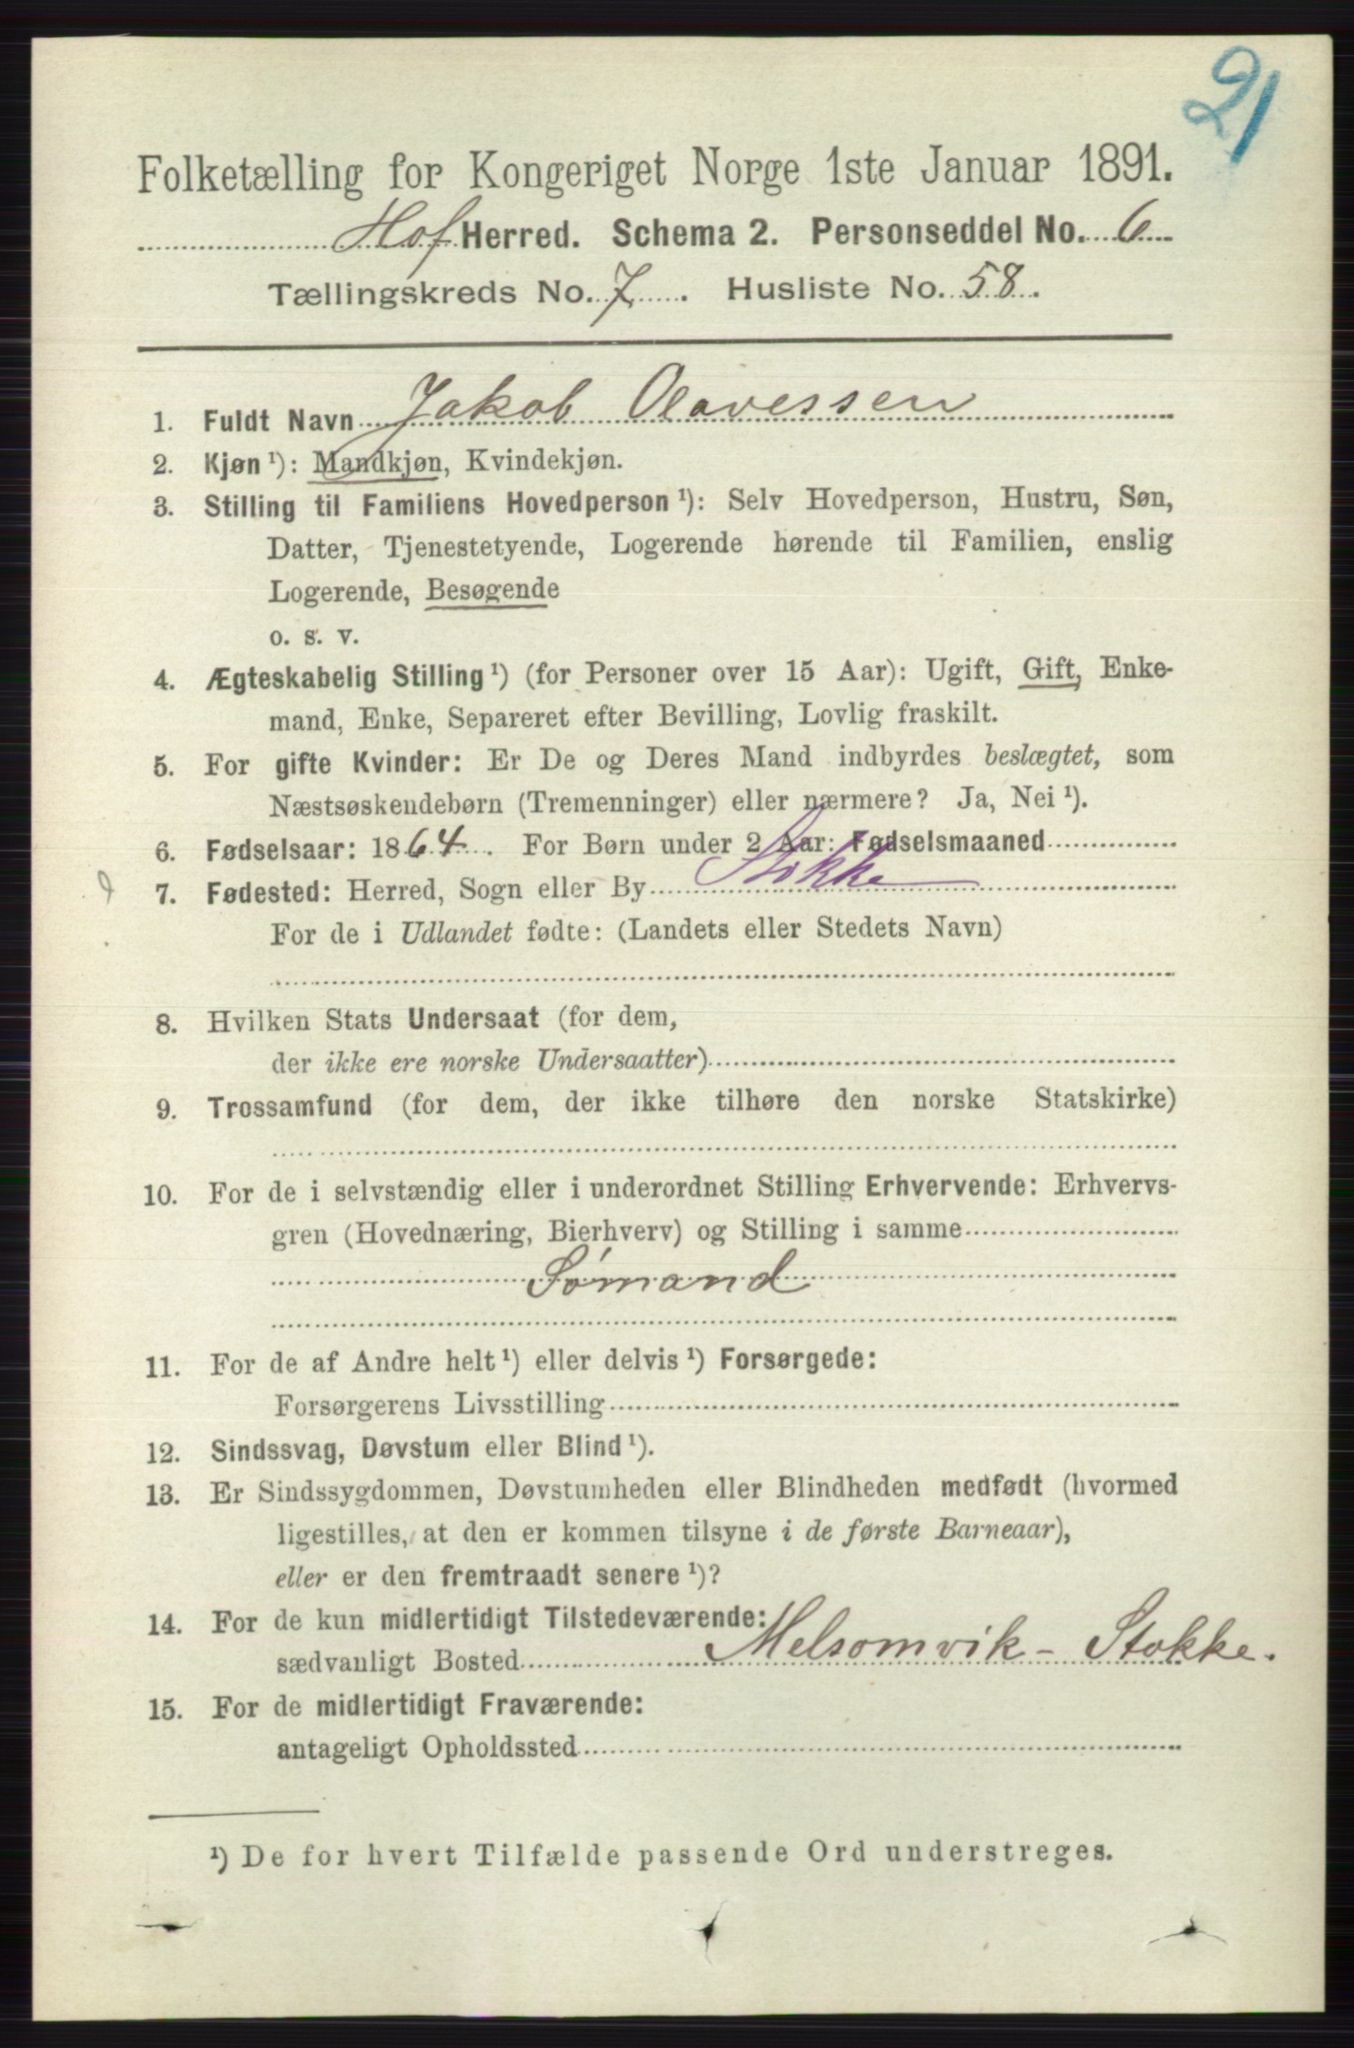 21
Folketælling for Kongeriget Norge 1ste Januar 1891.
Hof Herred. Schema 2. Personseddel No. 6
Tællingskreds No. 7. Husliste No. 58.
1. Fuldt Navn Jakob Olavessen
2. Kjøn ¹): Mandkjøn, Kvindekjøn.
3. Stilling til Familiens Hovedperson ¹): Selv Hovedperson, Hustru, Søn,
Datter, Tjenestetyende, Logerende hørende til Familien, enslig
Logerende, Besøgende
o. s. v.
4. Ægteskabelig Stilling ¹) (for Personer over 15 Aar): Ugift, Gift, Enke-
mand, Enke, Separeret efter Bevilling, Lovlig fraskilt.
5. For gifte Kvinder: Er De og Deres Mand indbyrdes beslægtet, som
Næstsøskendebørn (Tremenninger) eller nærmere? Ja, Nei ¹).
6. Fødselsaar: 1864. For Børn under 2 Aar: Fødselsmaaned
7. Fødested: Herred, Sogn eller By Stokke
For de i Udlandet fødte: (Landets eller Stedets Navn)
8. Hvilken Stats Undersaat (for dem,
der ikke ere norske Undersaatter)
9. Trossamfund (for dem, der ikke tilhøre den norske Statskirke)
10. For de i selvstændig eller i underordnet Stilling Erhvervende: Erhvervs-
gren (Hovednæring, Bierhverv) og Stilling i samme
Sømand
11. For de af Andre helt ¹) eller delvis ¹) Forsørgede:
Forsørgerens Livsstilling
12. Sindssvag, Døvstum eller Blind ¹).
13. Er Sindssygdommen, Døvstumheden eller Blindheden medfødt (hvormed
ligestilles, at den er kommen tilsyne i de første Barneaar),
eller er den fremtraadt senere ¹)?
14. For de kun midlertidigt Tilstedeværende:
sædvanligt Bosted Melsomvik - Stokke.
15. For de midlertidigt Fraværende:
antageligt Opholdssted
¹) De for hvert Tilfælde passende Ord understreges.